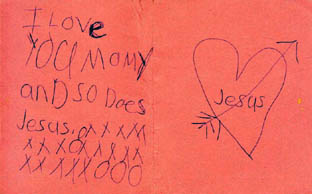 I Love
YOU MOMY
aND SO DOes
Jesus.oxxxM
XXXOXXXX
XXXXXOOO
Jesus